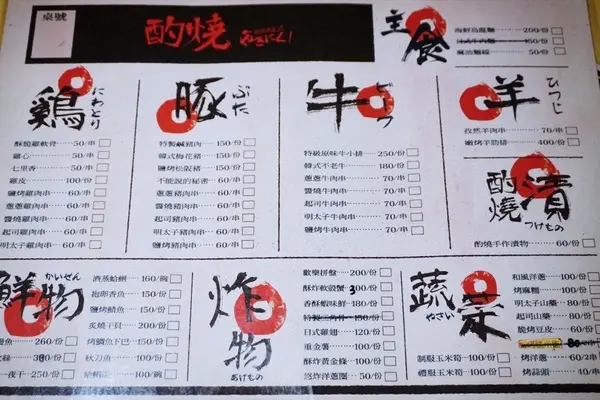 桌號
酌燒
やきにく!
主食
海鮮烏龍麵 200/份
日式牛肉麵 150/份
麻油麵線 50/份
鶏
にわとり
酥燒雞軟骨 50/串
雞心 50/串
七里香 60/串
雞皮 100/份
鹽烤雞肉串 60/串
蔥蔥雞肉串 60/串
醬燒雞肉串 60/串
起司雞肉串 60/串
明太子雞肉串 60/串
豚
ぶた
特製鹹豬肉 150/份
韓式梅花豬 150/份
鹽烤松阪豬 150/份
不能說的秘密 60/串
蔥蔥豬肉串 60/串
醬燒豬肉串 60/串
起司豬肉串 60/串
明太子豬肉串 60/串
鹽烤豬肉串 60/串
牛
ビーフ
特級原味牛小排 250/份
韓式不老牛 180/份
蔥蔥牛肉串 60/串
醬燒牛肉串 60/串
起司牛肉串 60/串
明太子牛肉串 60/串
鹽烤牛肉串 60/串
羊
ひつじ
孜然羊肉串 70/串
嫩烤羊肋排 400/份
酌燒漬
つけもの
酌燒手作漬物 60/份
鮮物
かいせん
酒蒸蛤蜊 160/碗
抱卵香魚 150/份
鹽烤鯖魚 150/份
炙燒干貝 200/份
烤鯛魚下巴 150/份
秋刀魚 100/份
100/碗
魚 260/份
300/份
一夜干 250/份
炸物
あげもの
歡樂拼盤 200/份
酥炸軟殼蟹 300/份
香酥蝦味鮮 180/份
特製三角骨 150/份
日式雞翅 120/份
重金薯 100/份
酥炸黃金條 100/份
悠炸洋蔥圈 50/份
蔬菜
やさい
制服玉米筍 100/份
禮服玉米筍 150/份
和風洋蔥 100/份
烤麻糬 100/份
明太子山藥 80/串
起司山藥 80/串
脆烤豆皮 60/份
80/串
烤洋蔥 60/串
烤蒜頭 40/串